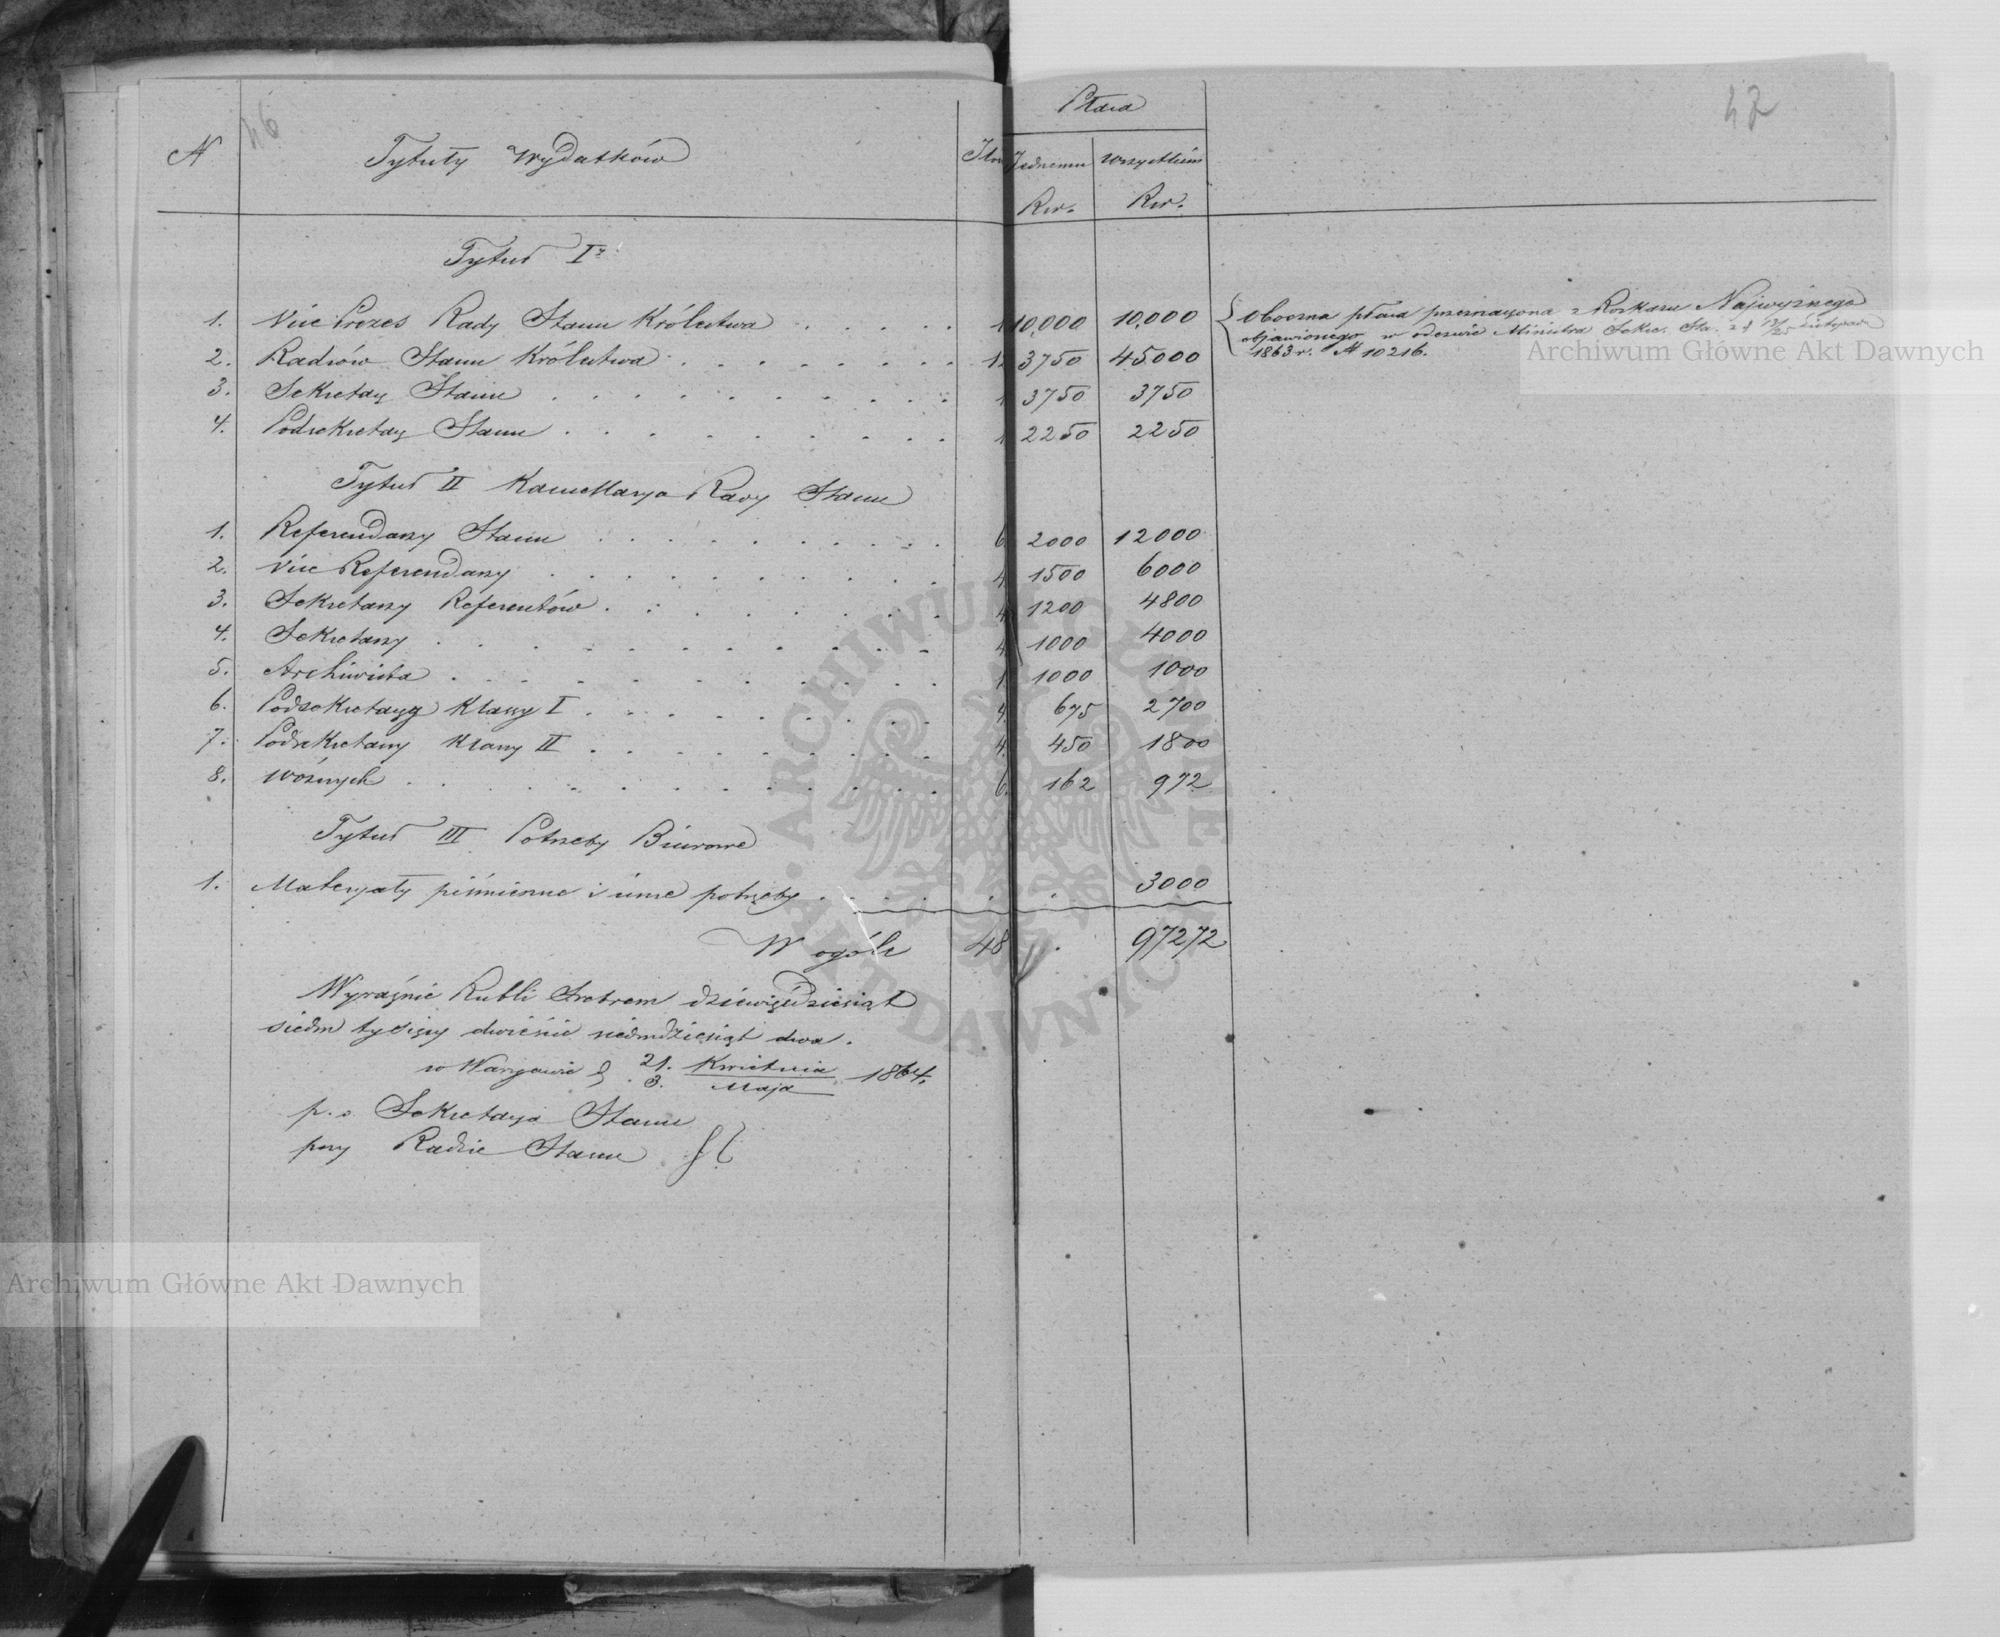 46
47
N Tytuły wydatków Ilo Płaca
Jednemu Wszystkim
Rsr. Rsr.
Tytuł I
1. Vice Prezes Rady Stanu Królestwa . . . . . 1 10,000 10,000
2. Radców Stanu Królestwa . . . . . . . . 12 3750 45000
3. Sekretarz Stanu . . . . . . . . . . 1 3750 3750
4. Podsekretarz Stanu . . . . . . . . . 1 2250 2250
{ Oboczna płaca przeznaczona z Rozkazu Najwyższego
objawionego w odezwie Ministra Sekr. Sta. z d 13/25 Listopada
1863 r. N 10216.
Tytuł II Kancellarya Rady Stanu
1. Referendarzy Stanu . . . . . . . . . 6 2000 12000
2. Vice Referendarzy . . . . . . . . . . 4 1500 6000
3. Sekretarzy Referentów . . . . . . . . . 4 1200 4800
4. Sekretarzy . . . . . . . . . . . . 4 1000 4000
5. Archiwista . . . . . . . . . . . . 1 1000 1000
6. Podsekretarzy Klassy I . . . . . . . . . 4 675 2700
7. Podsekretarzy Klassy II . . . . . . . . . 4. 450 1800
8. Woźnych . . . . . . . . . . . . 6. 162 972
Tytuł III Potrzeby Biurowe
1. Materyały piśmienne i inne potrzeby . . . . . . 3000
W ogóle 48 . 97272
Wyraźnie Rubli Srebrem dziewięćdziesiąt
siedm tysięcy dwieście siedmdziesiąt dwa.
w Warszawie d 21. Kwietnia 1864.
3. Maja
p. o. Sekretarza Stanu
przy Radzie Stanu
Archiwum Główne Akt Dawnych
Archiwum Główne Akt Dawnych
ARCHIWUM GŁÓWNE AKT DAWNYCH